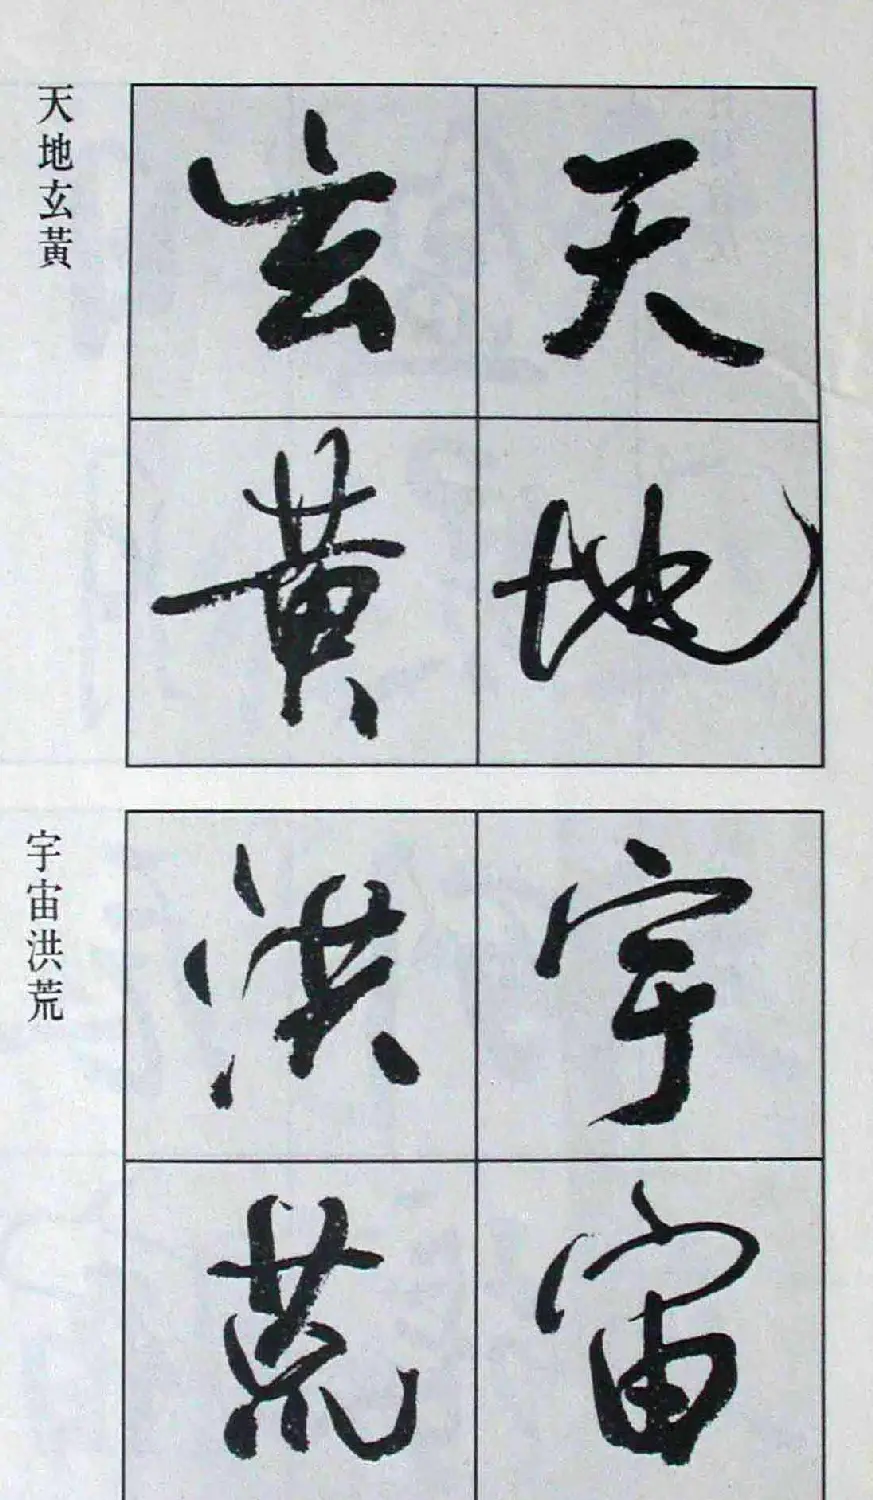 天地
玄黃
天地玄黃
宇宙
洪荒
宇宙洪荒